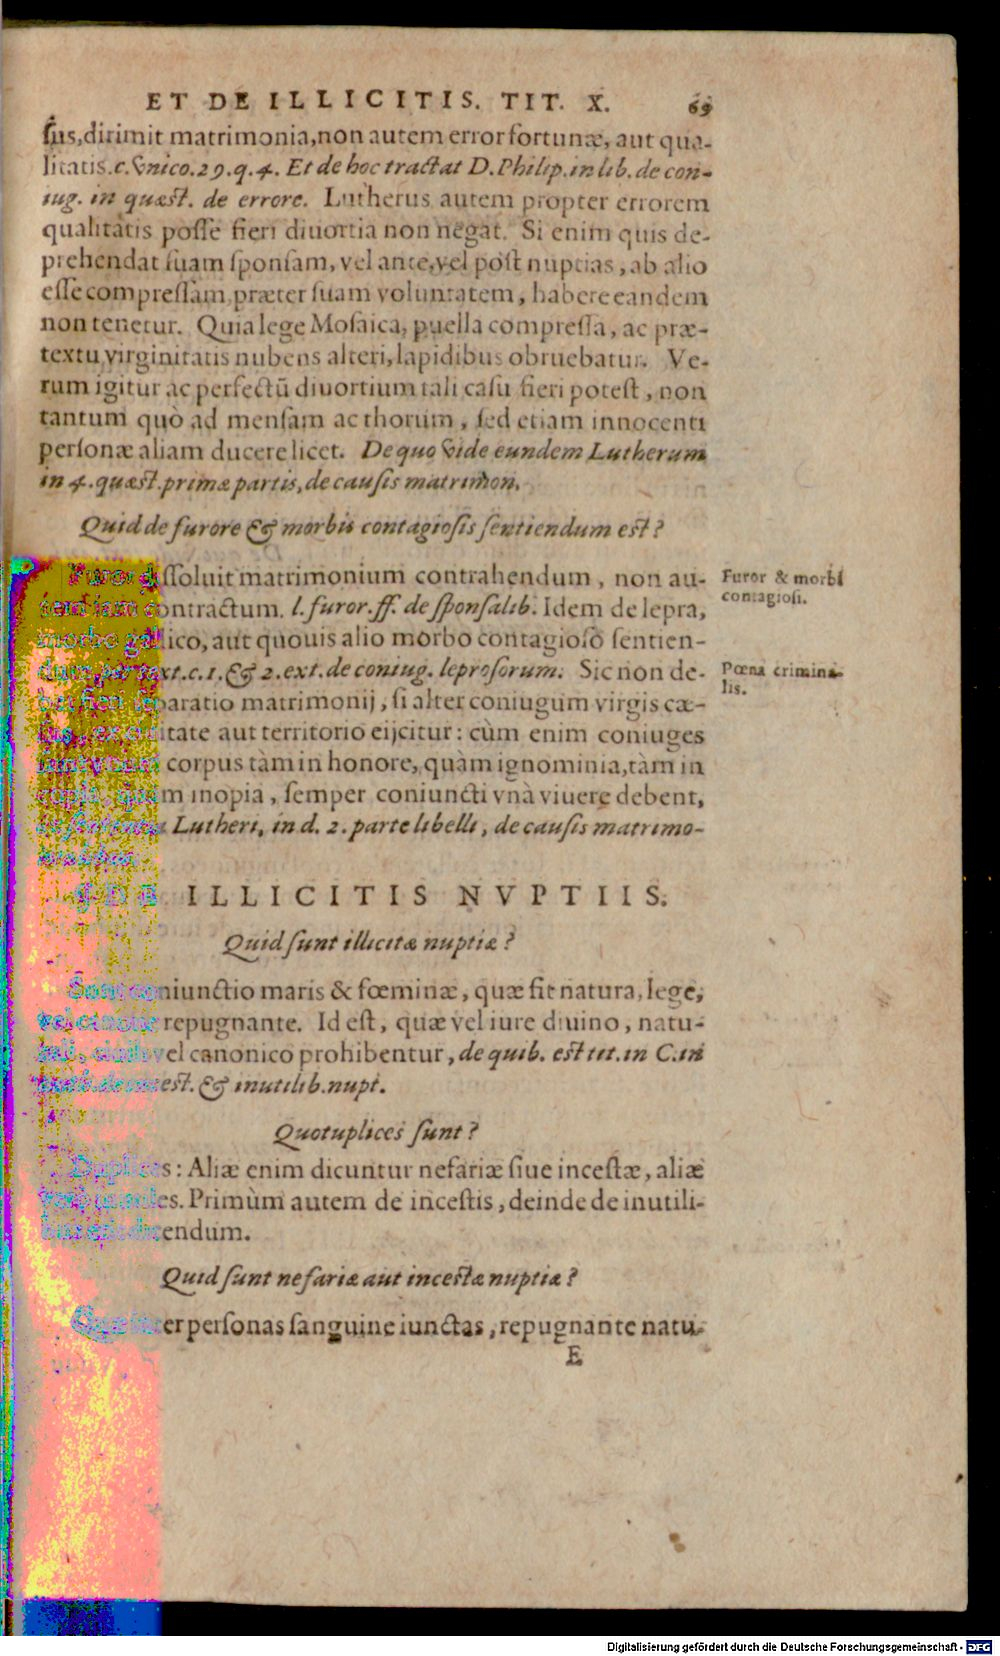 ET DE ILLICITIS. TIT. X. 69
sus, dirimit matrimonia, non autem error fortunæ, aut qua-
litatis. c. vnico. 29. q. 4. Et de hoc tractat D. Philip. in lib. de con-
iug. in quæst. de errore. Lutherus autem propter errorem
qualitàtis posse fieri diuortia non negat. Si enim quis de-
prehendat suam sponsam, vel ante, vel pòst nuptias, ab alio
esse compressam præter suam voluntatem, habere eandem
non tenetur. Quia lege Mosaica, puella compressa, ac præ-
textu virginitatis nubens alteri, lapidibus obruebatur. Ve-
rum igitur ac perfectū diuortium tali casu fieri potest, non
tantum quò ad mensam ac thorum, sed etiam innocenti
personæ aliam ducere licet. De quo vide eundem Lutherum
in 4. quæst. primæ partis, de causis matrimon.
Quid de furore & morbis contagiosis sentiendum est?
Furor dissoluit matrimonium contrahendum, non au-
tem iam contractum. l. furor. ff. de sponsalib. Idem de lepra,
morbo gallico, aut quouis alio morbo contagioso sentien-
dum, per text. c. 1. & 2. ext. de coniug. leprosorum. Sic non de-
bet fieri separatio matrimonij, si alter coniugum virgis cæ-
sus, ex ciuitate aut territorio eijcitur: cùm enim coniuges
corpus tàm in honore, quàm ignominia, tàm in
copia, quàm inopia, semper coniuncti vnà viuere debent,
Lutheri, in d. 2. parte libelli, de causis matrimo-
Furor & morbi
contagiosi.
Pœna crimina-
lis.
DE ILLICITIS NVPTIIS.
Quid sunt illicitæ nuptiæ?
Sunt coniunctio maris & fœminæ, quæ fit natura, lege,
vel canone repugnante. Id est, quæ vel iure diuino, natu-
rali, ciuili vel canonico prohibentur, de quib. est tit. in C. in
est. & inutilib. nupt.
Quotuplices sunt?
Duplices: Aliæ enim dicuntur nefariæ siue incestæ, aliæ
verò inutiles. Primùm autem de incestis, deinde de inutili-
bus est dicendum.
Quid sunt nefariæ aut incestæ nuptiæ?
Quæ inter personas sanguine iunctas, repugnante natu-
E
Digitalisierung gefördert durch die Deutsche Forschungsgemeinschaft - DFG